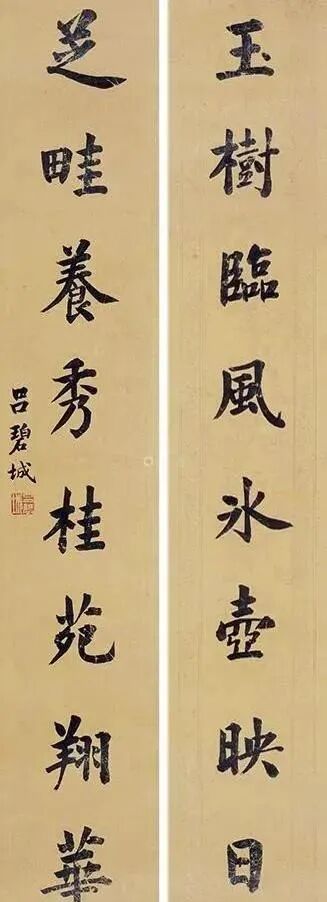 玉樹臨風冰壺映日
芝畦養秀桂苑翔華
吕碧城